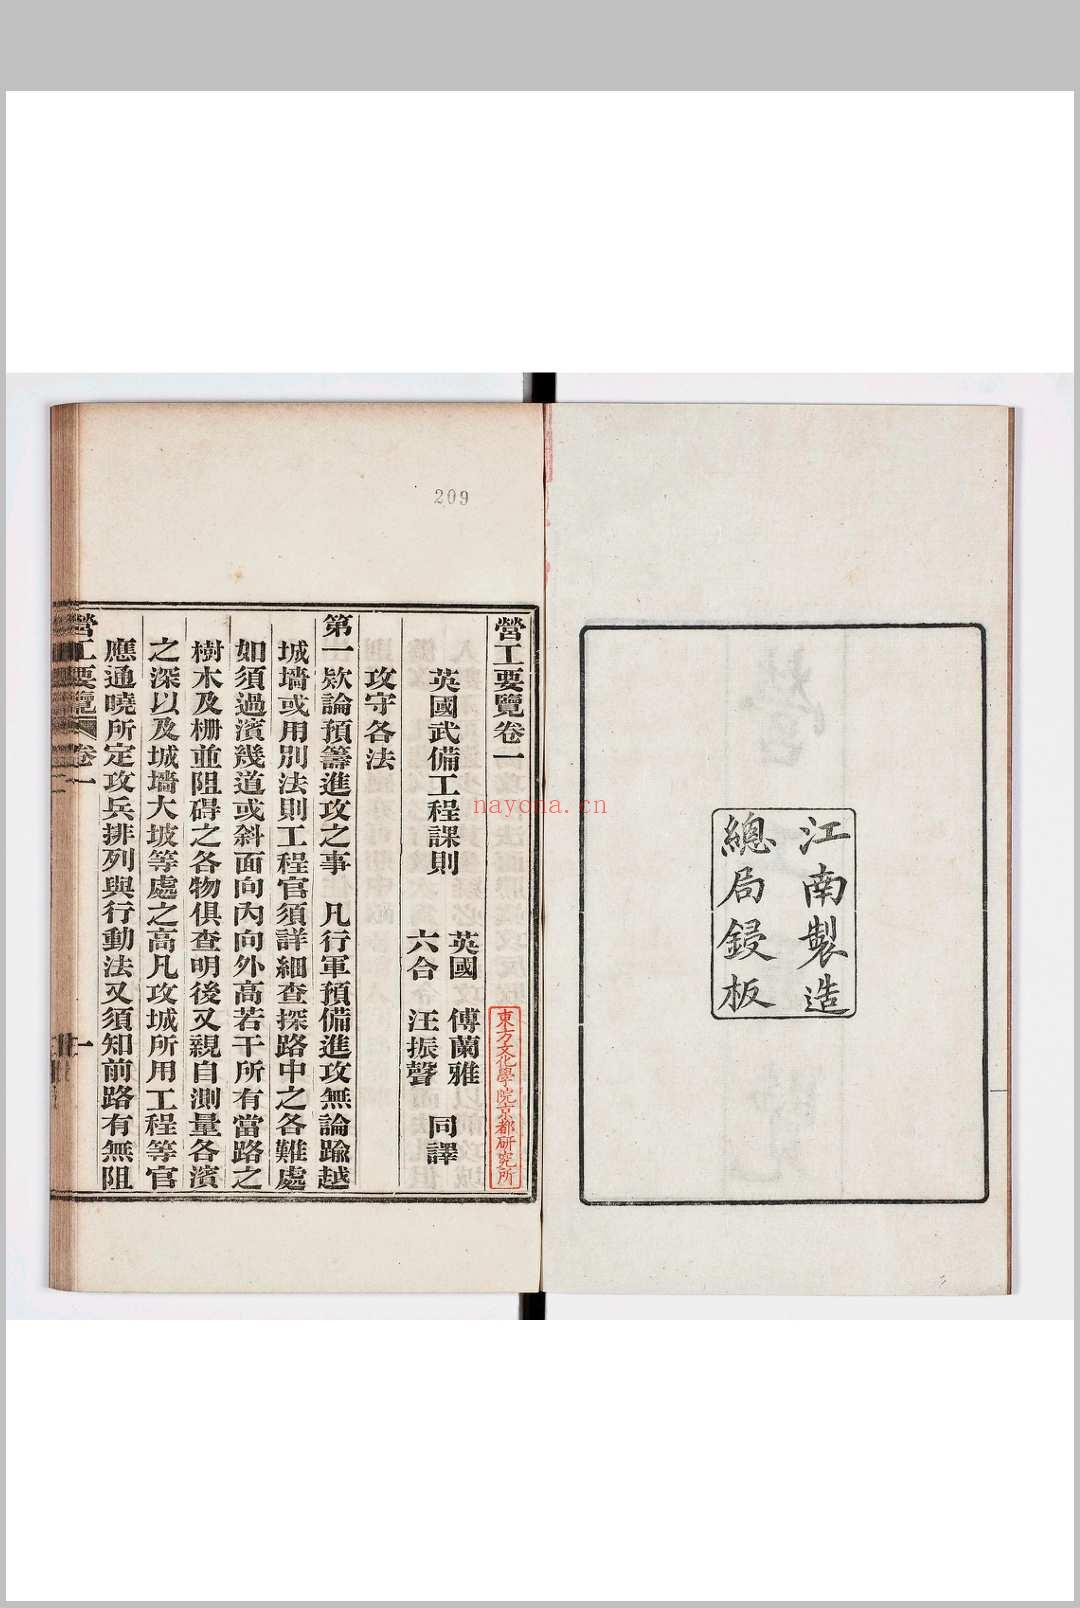 江南製造
總局鋟板
209
營工要覽卷一
英國武備工程課則
英國 傅蘭雅
六合 汪振聲
同譯
東方文化學院京都研究所
攻守各法
第一欵論預籌進攻之事 凡行軍預備進攻無論踰越
城墻或用別法則工程官須詳細查探路中之各難處
如須過濱幾道或斜面向內向外高若干所有當路之
樹木及柵並阻碍之各物俱查明後又親自測量各濱
之深以及城墻大坡等處之高凡攻城所用工程等官
應通曉所定攻兵排列與行動法又須知前路有無阻
營工要覽 卷一
一
nayona.cn